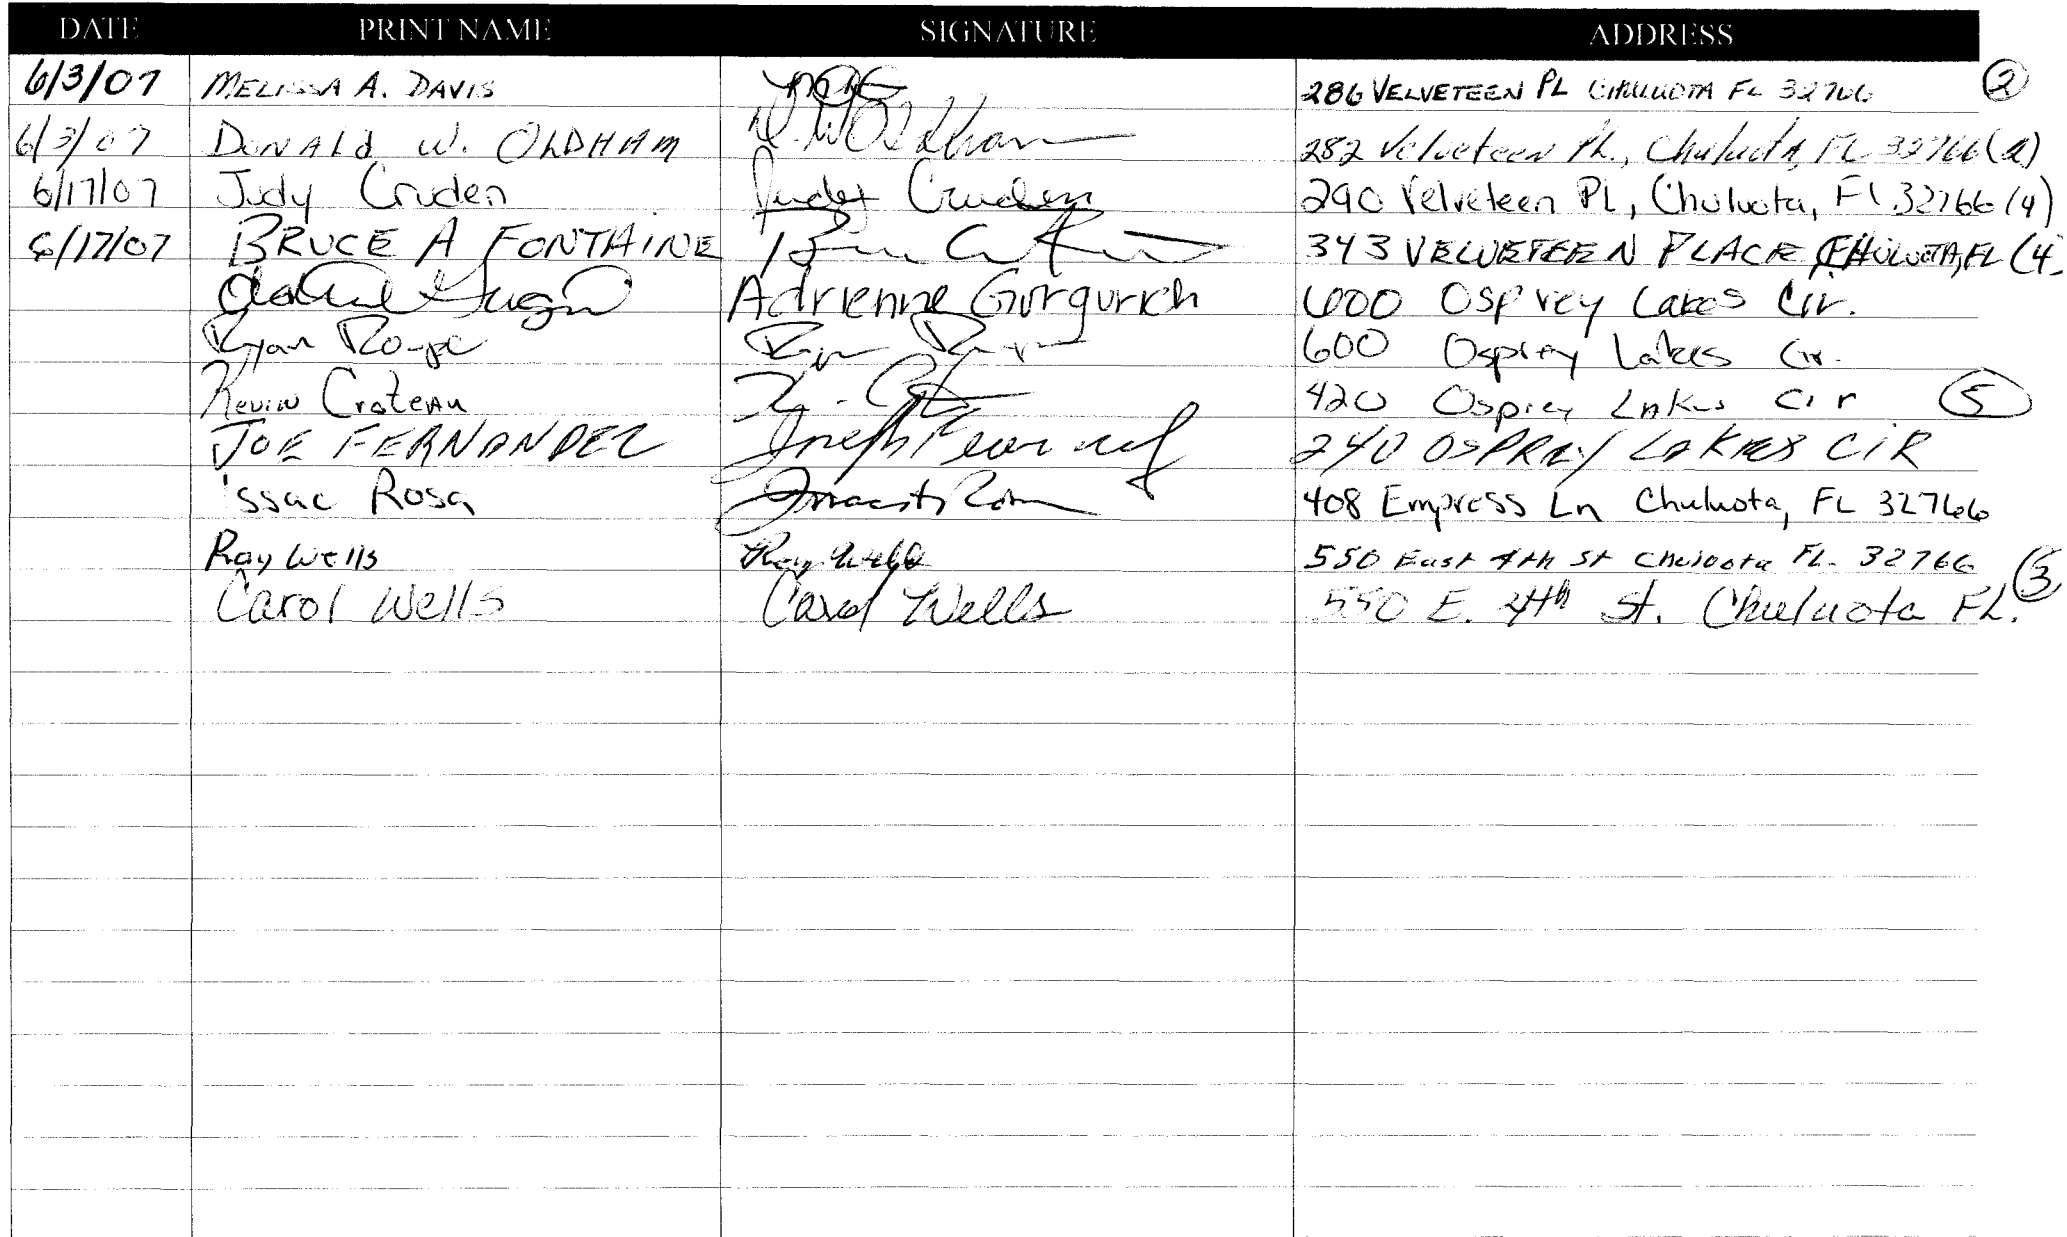 DATE PRINT NAME SIGNATURE ADDRESS
6/3/07 MELISSA A. DAVIS 286 VELVETEEN PL CHULUOTA FL 32766 (2)
6/3/07 DONALD W. OLDHAM D. W. Oldham 282 Velveteen PL., Chuluota, FL 32766 (2)
6/17/07 Judy Cruden Judy Cruden 290 Velveteen PL, Chuluota, Fl 32766 (4)
6/17/07 BRUCE A FONTAINE 343 VELVETEEN PLACE CHULUOTA, FL (4)
Adrienne Gurgurich 600 Osprey Lakes Cir.
Ryan 600 Osprey Lakes Cir.
Kevin Croteau 420 Osprey Lakes Cir (5)
JOE FERNANDEZ 240 OSPREY LAKES CIR
Issac Rosa 408 Empress Ln Chuluota, FL 32766
Ray Wells Ray Wells 550 East 4th St Chuluota FL. 32766
Carol Wells Carol Wells 550 E. 4th St. Chuluota FL. (3)